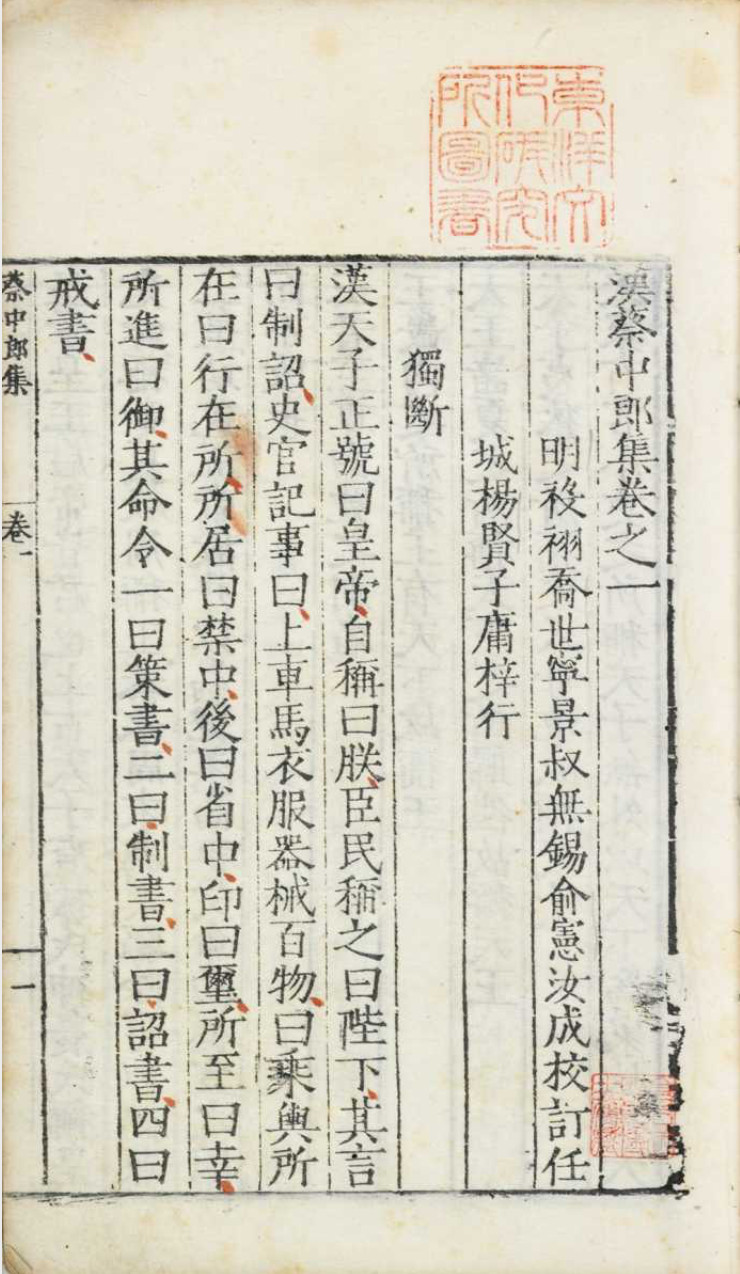 東洋文
化硏究
所圖書
漢蔡中郎集卷之一
明祋祤喬世寧景叔無錫俞憲汝成校訂任
城楊賢子庸梓行
獨斷
漢天子正號曰皇帝自稱曰朕臣民稱之曰陛下其言
曰制詔史官記事曰上車馬衣服器械百物曰乘輿所
在曰行在所所居曰禁中後曰省中印曰璽所至曰幸
所進曰御其命令一曰策書二曰制書三曰詔書四曰
戒書
蔡中郎集
卷一
一